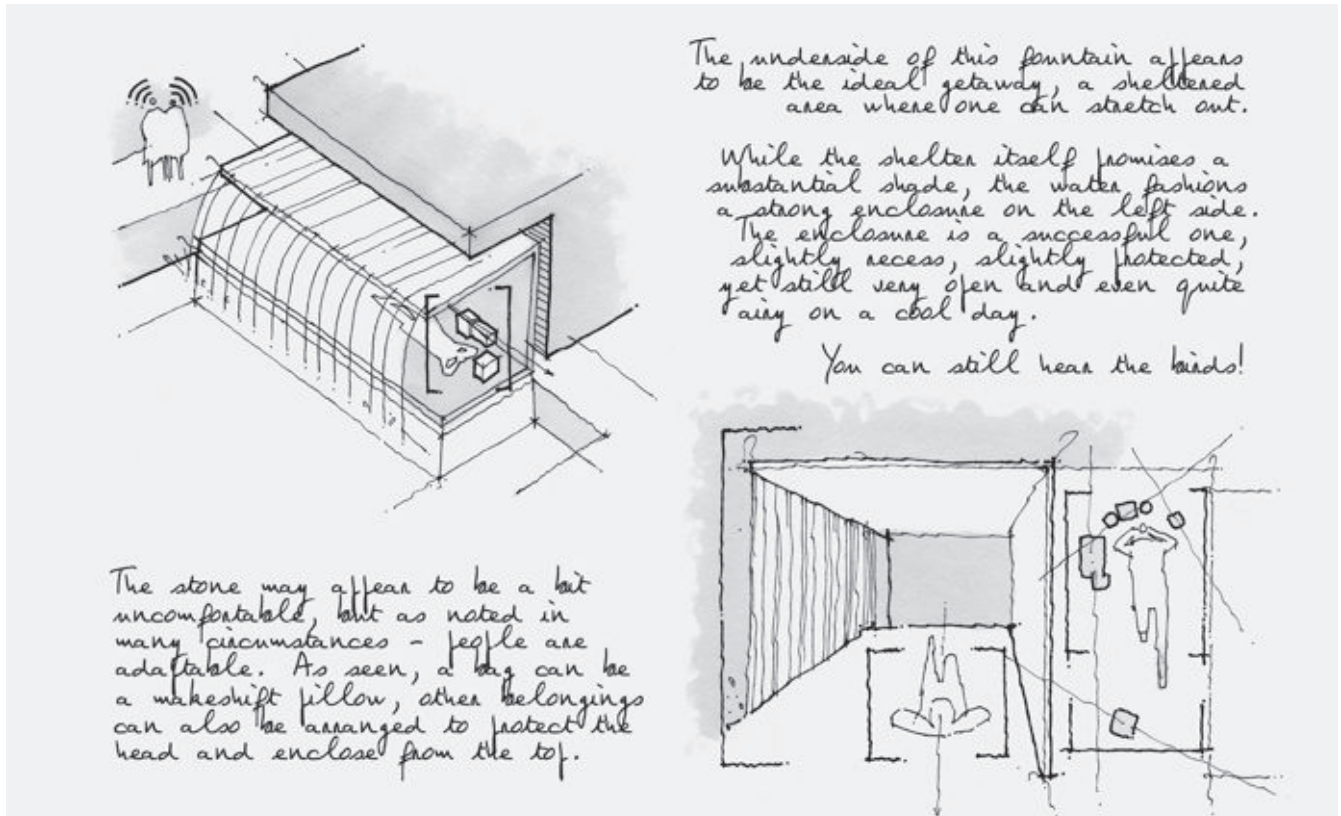 The underside of this fountain appears
to be the ideal getaway, a sheltered
area where one can stretch out.
While the shelter itself promises a
substantial shade, the water fashions
a strong enclosure on the left side.
The enclosure is a successful one,
slightly recess, slightly protected,
yet still very open and even quite
airy on a cool day.
You can still hear the birds!
The stone may appear to be a bit
uncomfortable, but as noted in
many circumstances - people are
adaptable. As seen, a bag can be
a makeshift pillow, other belongings
can also be arranged to protect the
head and enclose from the top.